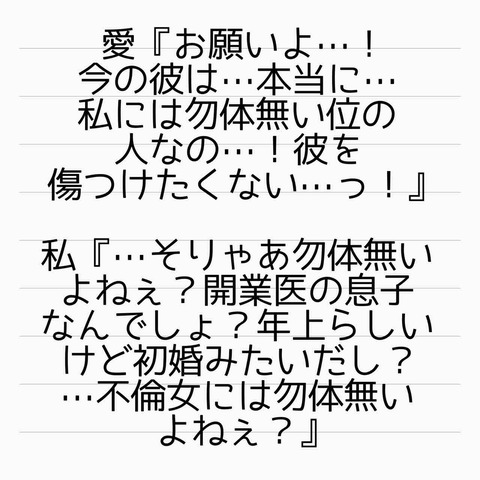 愛『お願いよ…！
今の彼は…本当に…
私には勿体無い位の
人なの…！彼を
傷つけたくない…っ！』
私『…そりゃあ勿体無い
よねぇ？開業医の息子
なんでしょ？年上らしい
けど初婚みたいだし？
…不倫女には勿体無い
よねぇ？』